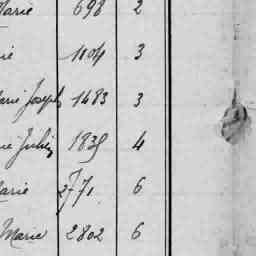 Marie 698 2
ie 1104 3
arie Joseph 1483 3
ie Julien 1839 4
Marie 2771 6
Marie 2802 6